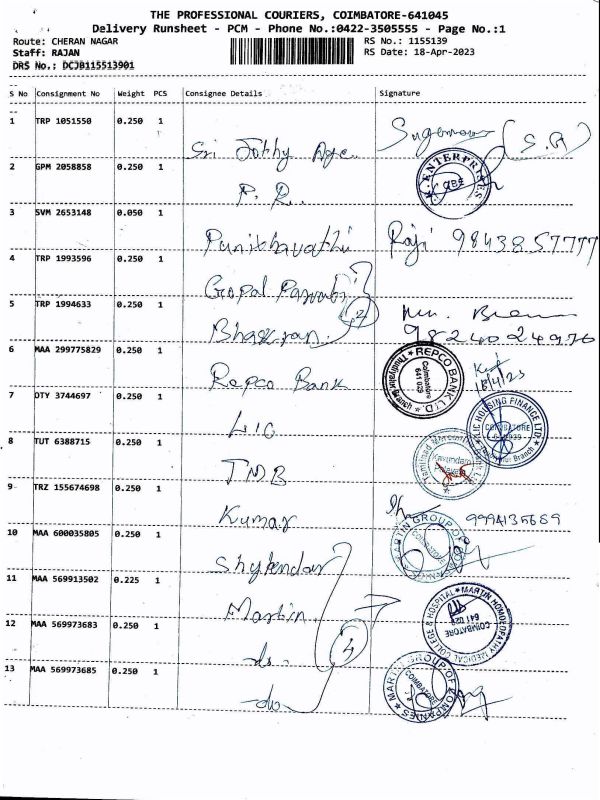 THE PROFESSIONAL COURIERS, COIMBATORE-641045
Delivery Runsheet - PCM - Phone No.:0422-3505555 - Page No.:1
Route: CHERAN NAGAR RS No.: 1155139
Staff: RAJAN RS Date: 18-Apr-2023
DRS No.: DCJB115513901
S No Consignment No Weight PCS Consignee Details Signature
1 TRP 1051550 0.250 1
2 GPM 2058858 0.250 1 P. R.
3 SVM 2653148 0.050 1 Punithavathi Raji 9843857777
4 TRP 1993596 0.250 1 Gopal
5 TRP 1994633 0.250 1 Bhaskran 2 9824024976
6 MAA 299775829 0.250 1 Repco Bank REPCO BANK LTD. Coimbatore 641 029 18/4/23
7 DTY 3744697 0.250 1 LIC LIC HOUSING FINANCE LTD. COIMBATORE
8 TUT 6388715 0.250 1 TMB
9 TRZ 155674698 0.250 1 Kumar
10 MAA 600035805 0.250 1 MARTIN GROUP OF
11 MAA 569913502 0.225 1 Martin MARTIN HOMOEOPATHY MEDICAL COLLEGE & HOSPITAL COIMBATORE
12 MAA 569973683 0.250 1 do
13 MAA 569973685 0.250 1 do MARTIN GROUP OF COMPANIES COIMBATORE